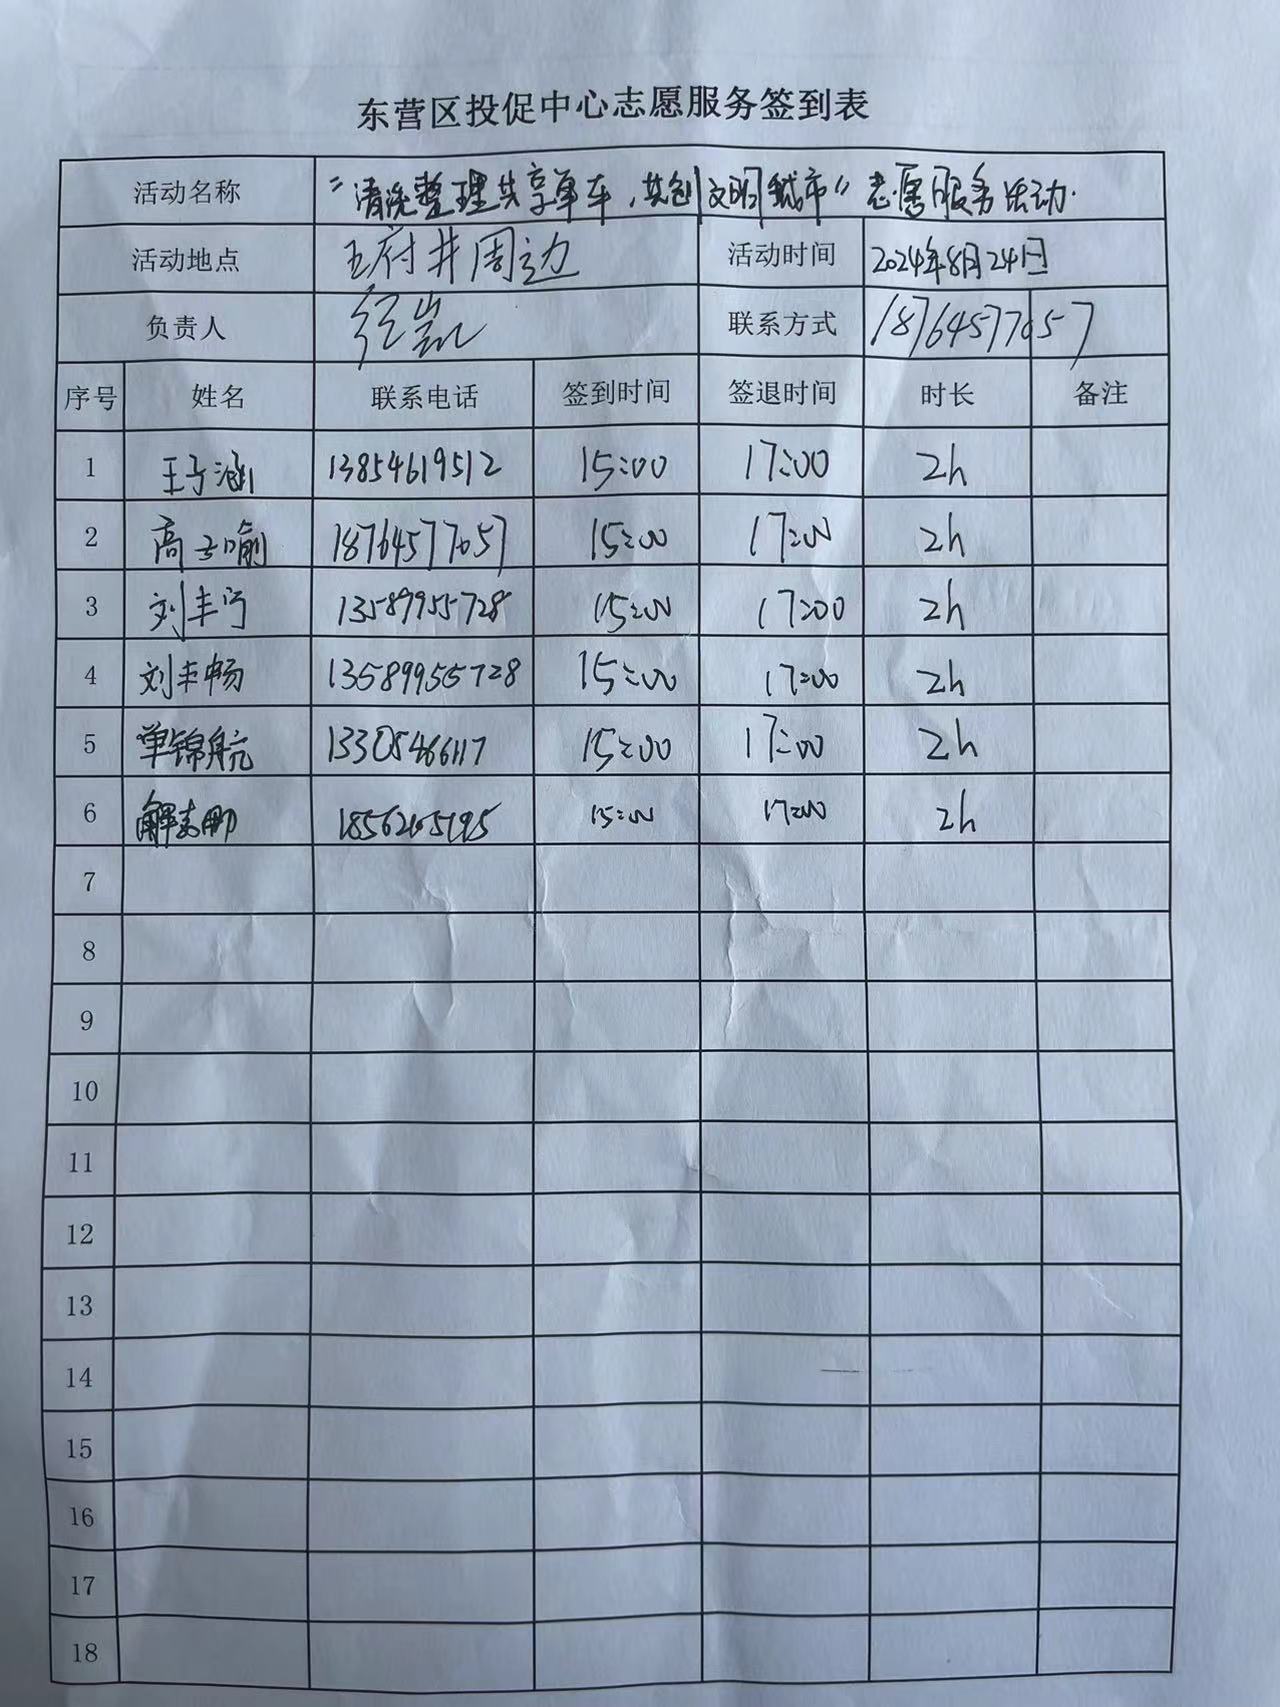 东营区投促中心志愿服务签到表
活动名称 “清洗整理共享单车，共创文明城市”志愿服务活动.
活动地点 王府井周边 活动时间 2024年8月24日
负责人 联系方式 18764577657
序号 姓名 联系电话 签到时间 签退时间 时长 备注
1 王子涵 13854619512 15:00 17:00 2h
2 高 喻 18764577657 15:00 17:00 2h
3 刘丰宁 13589955728 15:00 17:00 2h
4 刘丰畅 13589955728 15:00 17:00 2h
5 单锦航 13305466117 15:00 17:00 2h
6 15:00 17:00 2h
7
8
9
10
11
12
13
14
15
16
17
18